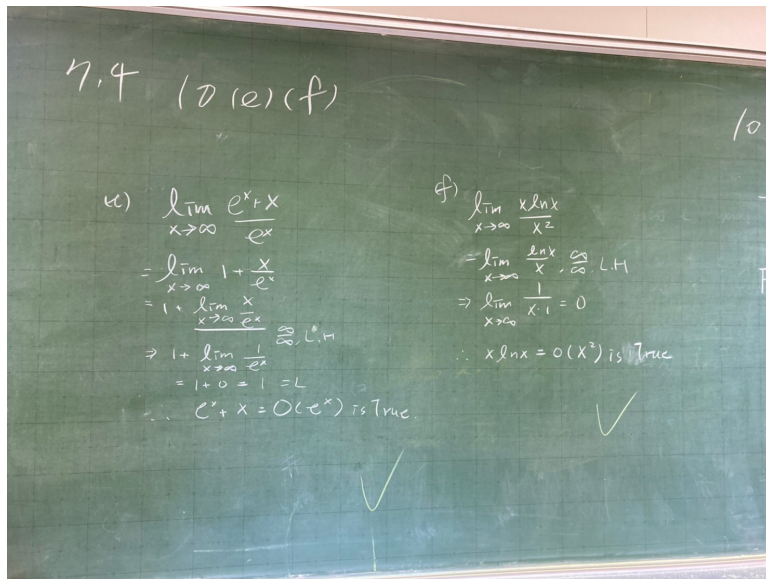 7.4 10 (e) (f)
e) lim x→∞ (e^x + x)/e^x
= lim x→∞ 1 + x/e^x
= 1 + lim x→∞ x/e^x ∞/∞, L'H
⇒ 1 + lim x→∞ 1/e^x
= 1 + 0 = 1 = L
∴ e^x + x = O(e^x) is True.
f) lim x→∞ xlnx/x^2
= lim x→∞ lnx/x, ∞/∞, L.H
⇒ lim x→∞ 1/(x·1) = 0
∴ xlnx = o(x^2) is True
10